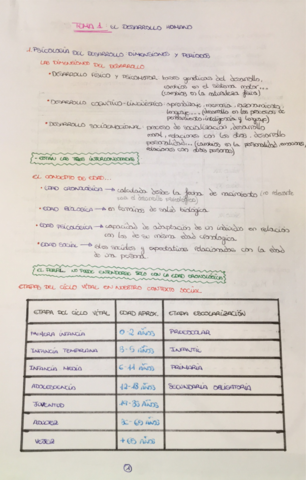 TEMA 1. EL DESARROLLO HUMANO
1. PSICOLOGÍA DEL DESARROLLO DIMENSIONES Y PERÍODOS
LAS DIMENSIONES DEL DESARROLLO
• DESARROLLO FÍSICO Y PSICOMOTOR: bases genéticas del desarrollo,
cambios en el sistema motor...
(cambios en la naturaleza física)
• DESARROLLO COGNITIVO-LINGÜÍSTICO: aprendizaje, memoria,
lenguaje... (desarrollo en los procesos de
pensamiento, inteligencia y lenguaje)
• DESARROLLO SOCIOEMOCIONAL: proceso de socialización, desarrollo
moral, relaciones con los demás, desarrollo
personalidad... (cambios en la personalidad, emociones,
relaciones con otras personas)
• ESTÁN LAS TRES INTERCONECTADAS
EL CONCEPTO DE EDAD...
• EDAD CRONOLÓGICA → calculada desde la fecha de nacimiento
• EDAD BIOLÓGICA → en términos de salud biológica
• EDAD PSICOLÓGICA → capacidad de adaptación de un individuo en relación
con los de su misma edad cronológica
• EDAD SOCIAL → roles sociales y expectativas relacionadas con la edad
de una persona.
CON LA EDAD CRONOLÓGICA
ETAPAS DEL CICLO VITAL EN NUESTRO CONTEXTO SOCIAL
ETAPA DEL CICLO VITAL EDAD APROX. ETAPA ESCOLARIZACIÓN
PRIMERA INFANCIA 0-2 AÑOS PREESCOLAR
INFANCIA TEMPRANA 3-5 AÑOS INFANTIL
INFANCIA MEDIA 6-11 AÑOS PRIMARIA
ADOLESCENCIA 12-18 AÑOS SECUNDARIA OBLIGATORIA
JUVENTUD AÑOS
ADULTEZ AÑOS
VEJEZ +65 AÑOS